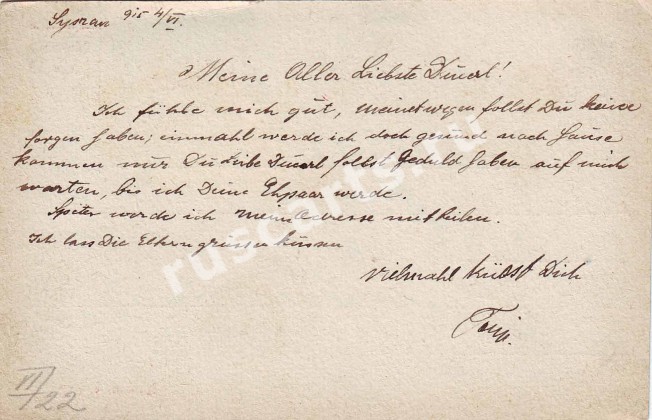 Sysran 915 4/VI.
Meine Aller Liebste
Ich fühle mich gut, meinetwegen sollst Du keine
sorgen haben; einmahl werde ich doch gesund nach Hause
kommen nur Du Liebe sollst Geduld haben auf mich
warten, bis ich Deine werde.
Später werde ich meine Adresse mitheilen.
Ich lass Die Eltern grüssen küssen
vielmahl küsst Dich
III/22
ruscarts.ru